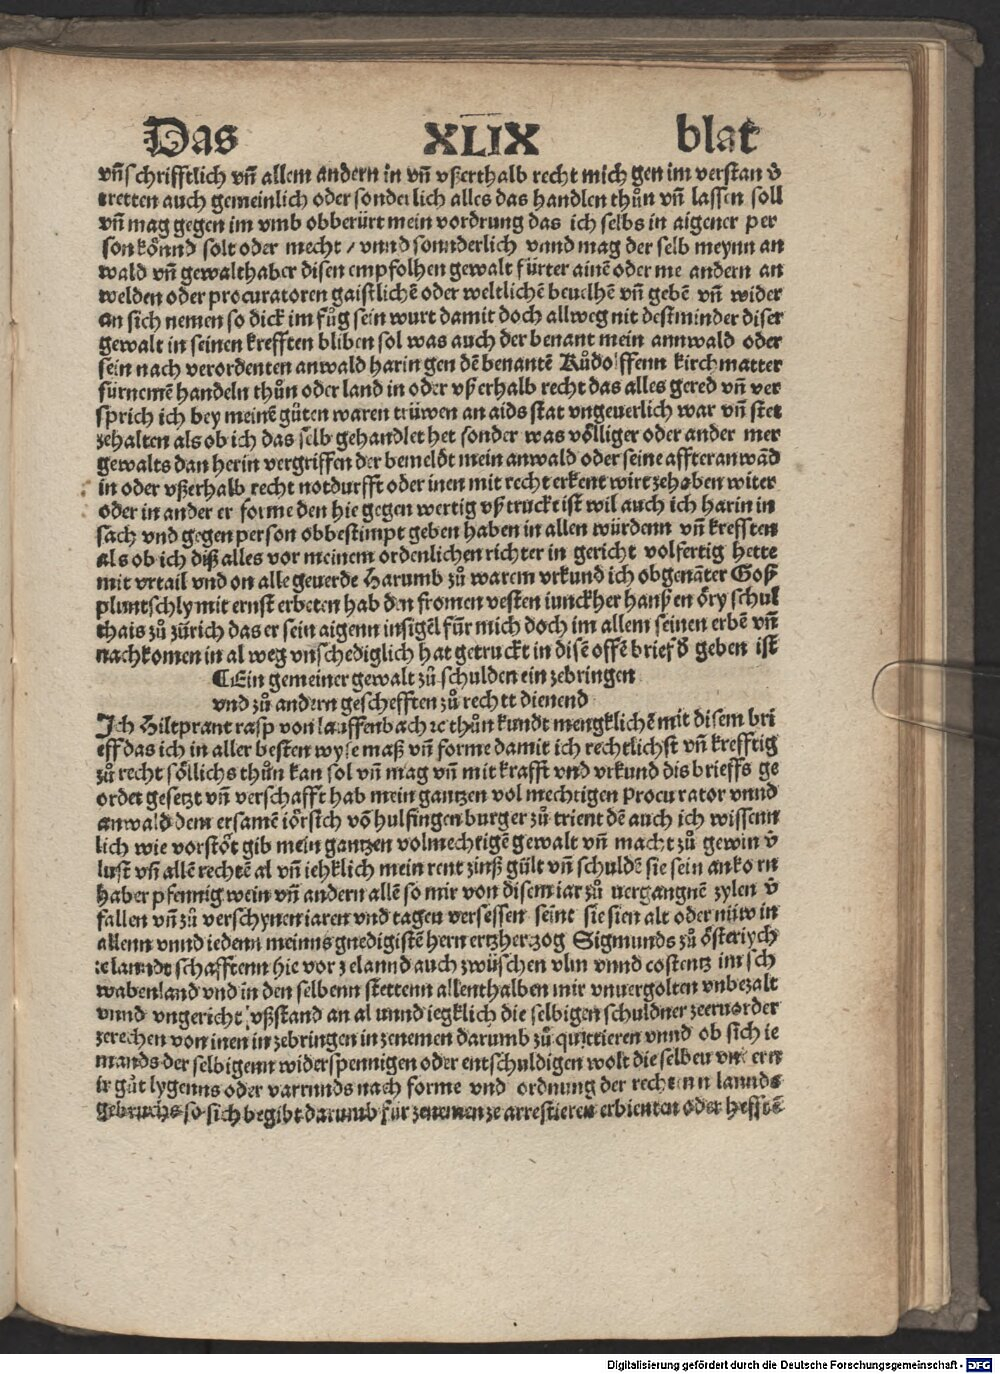 Das XLIX blat
vn̄ schrifftlich vn̄ allem andern in vn̄ vßerthalb recht mich gen im verstan v̄
tretten auch gemeinlich oder sonderlich alles das handlen thůn vn̄ lassen soll
vn̄ mag gegen im vmb obberürt mein vordrung das ich selbs in aigener per
son könnd solt oder mecht / vnnd sonnderlich vnnd mag der selb meynn an
wald vn̄ gewalthaber disen empfolhen gewalt fürter ainē oder me andern an
welden oder procuratoren gaistlichē oder weltlichē beuelhē vn̄ gebē vn̄ wider
an sich nemen so dick im fůg sein wurt damit doch allweg nit destminder diser
gewalt in seinen krefften bliben sol was auch der benant mein annwald oder
sein nach verordenten anwald harin gen dē benantē Růdolffenn kirchmatter
fürnemē handeln thůn oder land in oder vßerhalb recht das alles gered vn̄ ver
sprich ich bey meinē gůten waren trüwen an aids stat vngeuerlich war vn̄ stet
zehalten als ob ich das selb gehandlet het sonder was völliger oder ander mer
gewalts dan herin vergriffen der bemeldt mein anwald oder seine affteranwād
in oder vßerhalb recht notdurfft oder inen mit recht erkent wirt zehaben witer
oder in ander er forme den hie gegen wertig vß truckt ist wil auch ich harin in
sach vnd gegen person obbestimpt geben haben in allen würdenn vn̄ krefften
als ob ich diß alles vor meinem ordenlichen richter in gericht volfertig hette
mit vrtail vnd on alle geuerde Harumb zů warem vrkund ich obgenāter Goß
pluntschly mit ernst erbeten hab den fromen vesten iunckher hanßen öry schul
thais zů zürich das er sein aigenn insigēl für mich doch im allem seinen erbē vn̄
nachkomen in al weg vnschediglich hat getruckt in disē offē brief d̄ geben ist
¶Ein gemeiner gewalt zů schulden ein zebringen
vnd zů andern geschefften zů rechtt dienend
Ich Hiltprant rasp von lauffenbach ꝛc thůn kundt mengklichē mit disem bri
eff das ich in aller besten wyse maß vn̄ forme damit ich rechtlichst vn̄ krefftig
zů recht söllichs thůn kan sol vn̄ mag vn̄ mit krafft vnd vrkund dis brieffs ge
ordet gesetzt vn̄ verschafft hab mein gantzen vol mechtigen procurator vnnd
anwald dem ersamē iörsich vō hulfingen burger zů trient dē auch ich wissenn
lich wie vorstöt gib mein gantzen volmechtigē gewalt vn̄ macht zů gewin v̄
lust vn̄ allē rechtē al vn̄ iehklich mein rent zinß gült vn̄ schuldē sie sein an korn
haber pfennig wein vn̄ andern allē so mir von disem iar zů uergangnē zylen v̄
fallen vn̄ zů verschynen iaren vnd tagen versessen seint sie sien alt oder nüw in
allenn vnnd iedenn meinns gnedigistē hern ertzherzog Sigmunds zů österiych
ꝛc lanndt schafftenn hie vor zelannd auch zwüschen vlm vnnd costentz im sch
wabenland vnd in den selbenn stettenn allenthalben mir vnuergolten vnbezalt
vnnd vngericht vßstand an al unnd iegklich die selbigen schuldner zeeruorder
zerechen von inen in zebringen in zenemen darumb zů quittieren vnnd ob sich ie
mands der selbigenn widerspennigen oder entschuldigen wolt die selben vnd ern
ir gůt lygenns oder varrnnds nach forme vnd ordnung der rechtenn lannds
gebruchs so sich begibt darumb für zenemen ze arrestieren erbienten oder hefftē
Digitalisierung gefördert durch die Deutsche Forschungsgemeinschaft - DFG